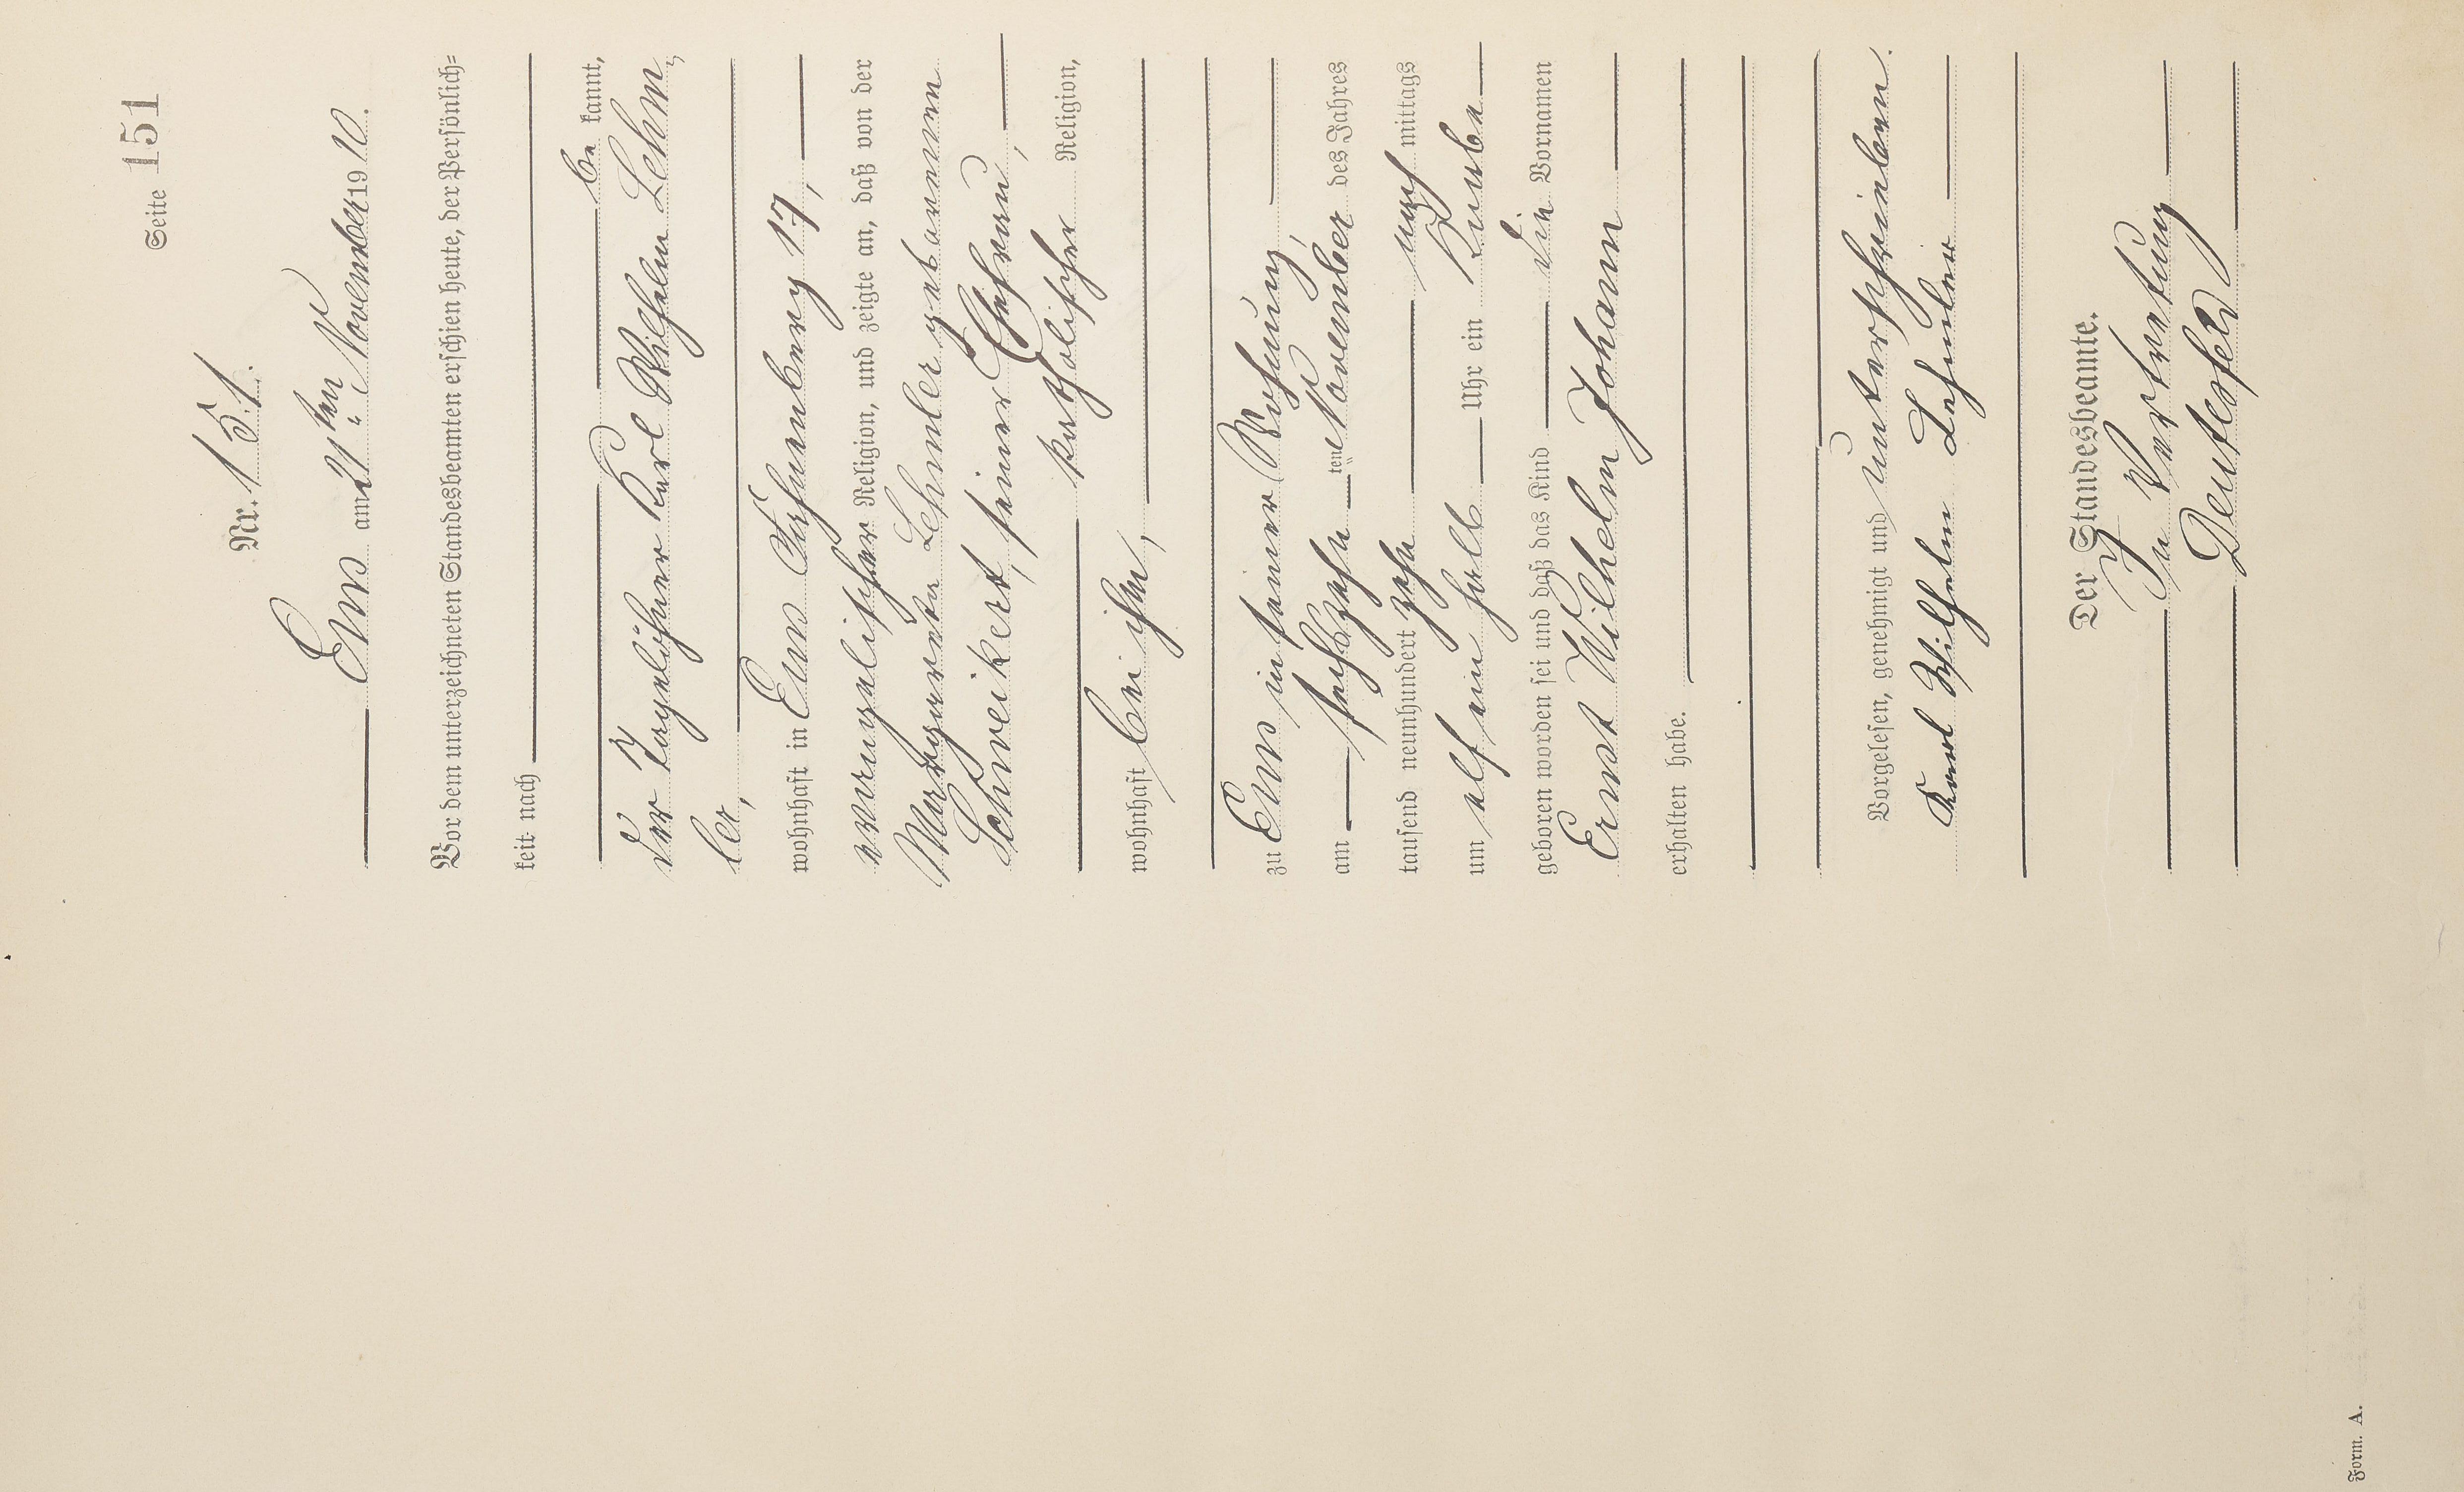 Seite 151
Nr. 151.
Ems am 21ten November 1910.
Vor dem unterzeichneten Standesbeamten erschien heute, der Persönlich=
keit nach
be kannt,
der Tagelöhner Karl Wilhelm Lehm=
ler,
wohnhaft in Ems 17,
evangelischer Religion, und zeigte an, daß von der
Margareta Lehmler geborenen
Schweikert, seiner Ehefrau,
katholischer Religion,
wohnhaft bei ihm,
zu Ems in seiner Wohnung,
am sechszehn ten November des Jahres
tausend neunhundert zehn nach mittags
um elf ein halb Uhr ein Knabe
geboren worden sei und daß das Kind die Vornamen
Ernst Wilhelm Johann
erhalten habe.
Vorgelesen, genehmigt und unterschrieben.
Karl Wilhelm Lehmler
Der Standesbeamte.
In Vertretung
Deutesfeld
Form. A.